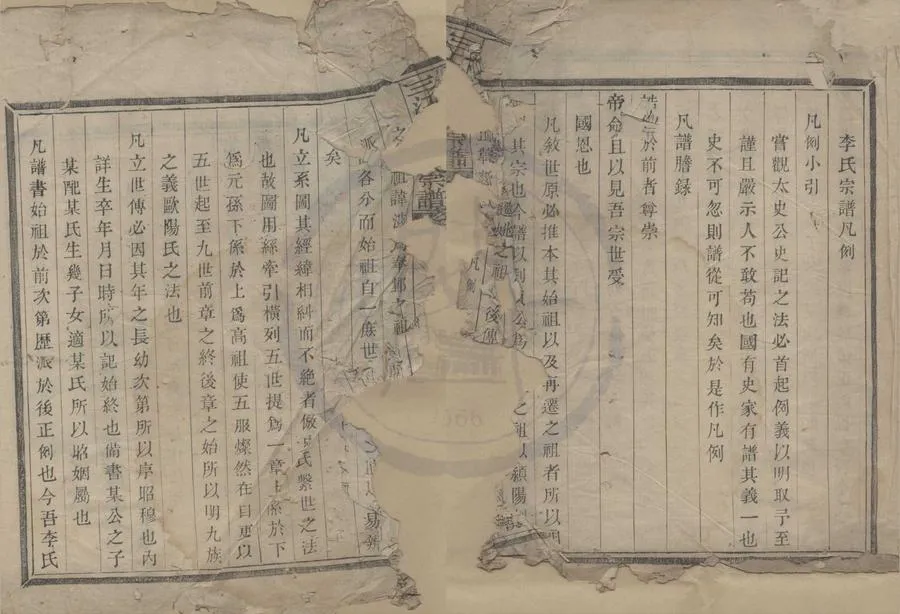 李氏宗譜凡例
凡例小引
嘗觀太史公史記之法必首起例義以明取予至
謹且嚴示人不敢苟也國有史家有譜其義一也
史不可忽則譜從可知矣於是作凡例
凡譜謄錄
於前者尊崇
帝命且以見吾宗世受
國恩也
凡敘世原必推本其始祖以及再遷之祖者所以
其宗也今譜以 公為 之祖以潁陽
之祖
後傳
凡例
宗譜
宗譜
江
之祖諱 奉鄉之祖
派各分而始祖自一族世 易辨
矣
凡立系圖其經緯相糾而不絶者倣 氏繫世之法
也故圖用絲牽引橫列五世提為一章上係於下
為元孫下係於上為高祖使五服燦然在目更以
五世起至九世前章之終後章之始所以明九族
之義歐陽氏之法也
凡立世傳必因其年之長幼次第所以序昭穆也內
詳生卒年月日時所以記始終也備書某公之子
某配某氏生幾子女適某氏所以昭姻屬也
凡譜書始祖於前次第歷派於後正例也今吾李氏